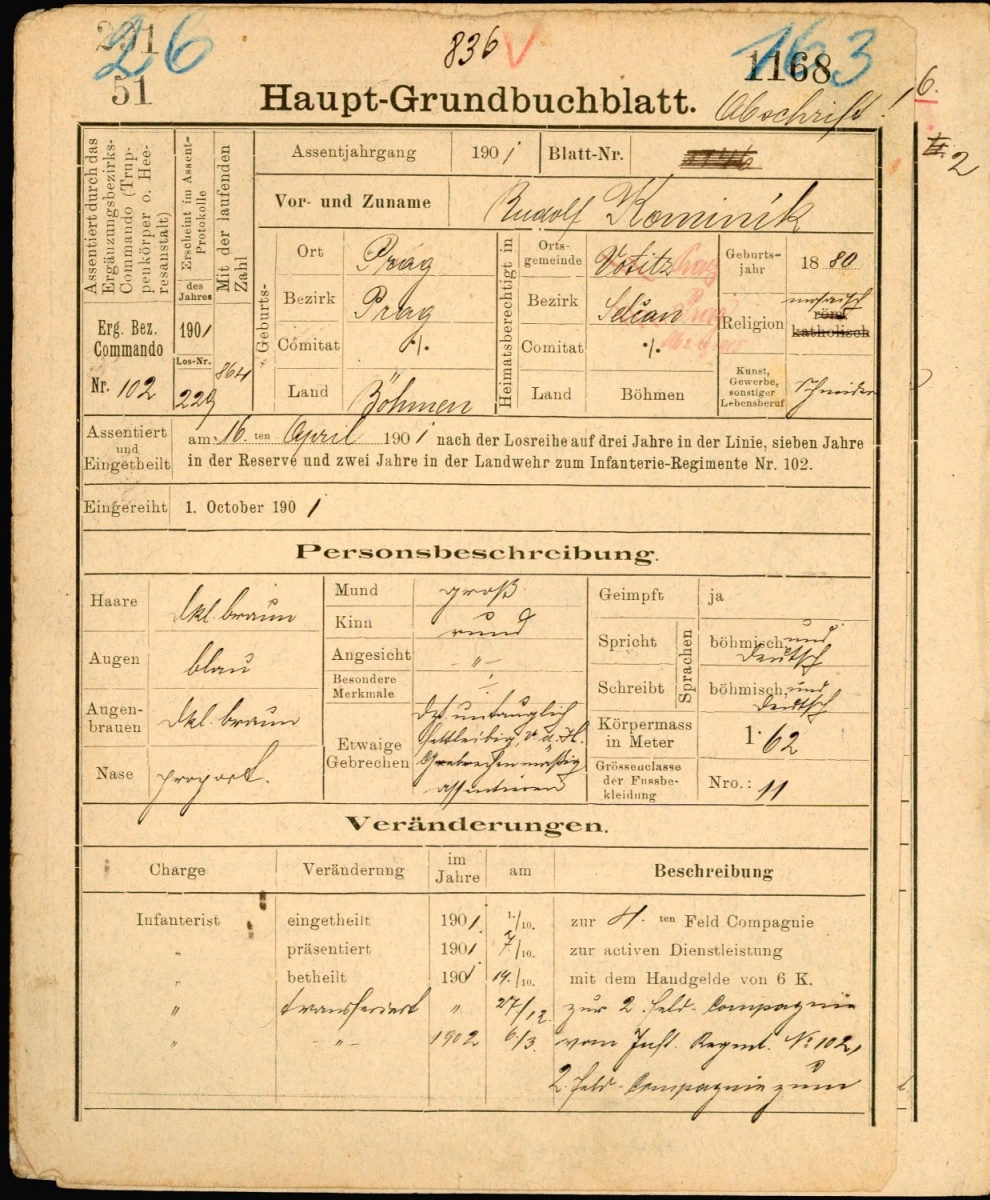 26
51
836 V
1168
163
Haupt-Grundbuchblatt.
Abschrift!
6.
2
Assentiert durch das Ergänzungsbezirks-Commando (Truppenkörper o. Heeresanstalt)
Erscheint im Assent-Protokolle
Mit der laufenden Zahl
des Jahres
Erg. Bez. Commando
Nr. 102
1901
Los-Nr.
229
864
Assentjahrgang 1901 Blatt-Nr.
Vor- und Zuname Rudolf Kominik
Geburts-
Ort Prag
Bezirk Prag
Comitat ·/.
Land Böhmen
Heimatsberechtigt in
Orts-gemeinde Votitz Prag
Bezirk Selčan Prag
Comitat ·/.
Land Böhmen
Geburts-jahr 1880
Religion mosaisch
röm. katholisch
Kunst, Gewerbe, sonstiger Lebensberuf Schneider
Assentiert und Eingetheilt
am 16 ten April 1901 nach der Losreihe auf drei Jahre in der Linie, sieben Jahre
in der Reserve und zwei Jahre in der Landwehr zum Infanterie-Regimente Nr. 102.
Eingereiht 1. October 1901
Personsbeschreibung.
Haare dkl. braun
Augen blau
Augen-brauen dkl. braun
Nase proport.
Mund groß
Kinn rund
Angesicht -"-
Besondere Merkmale ÷
Etwaige Gebrechen
untauglich
fettleibig, v. d. H.
Gebrechen mäßig
assentieren
Geimpft ja
Sprachen
Spricht böhmisch und deutsch
Schreibt böhmisch, und deutsch
Körpermass in Meter 1·62
Grössenclasse der Fussbe-kleidung Nro.: 11
Veränderungen.
Charge Veränderung im Jahre am Beschreibung
Infanterist eingetheilt 1901 1./10. zur 4. ten Feld Compagnie
" präsentiert 1901 7/10. zur activen Dienstleistung
" betheilt 1901 14./10. mit dem Handgelde von 6 K.
" transferiert " 27/12. zur 2. Feld-Compagnie
" -"- 1902 6/3. vom Inft. Regmt. No 102,
2. Feld-Compagnie zum